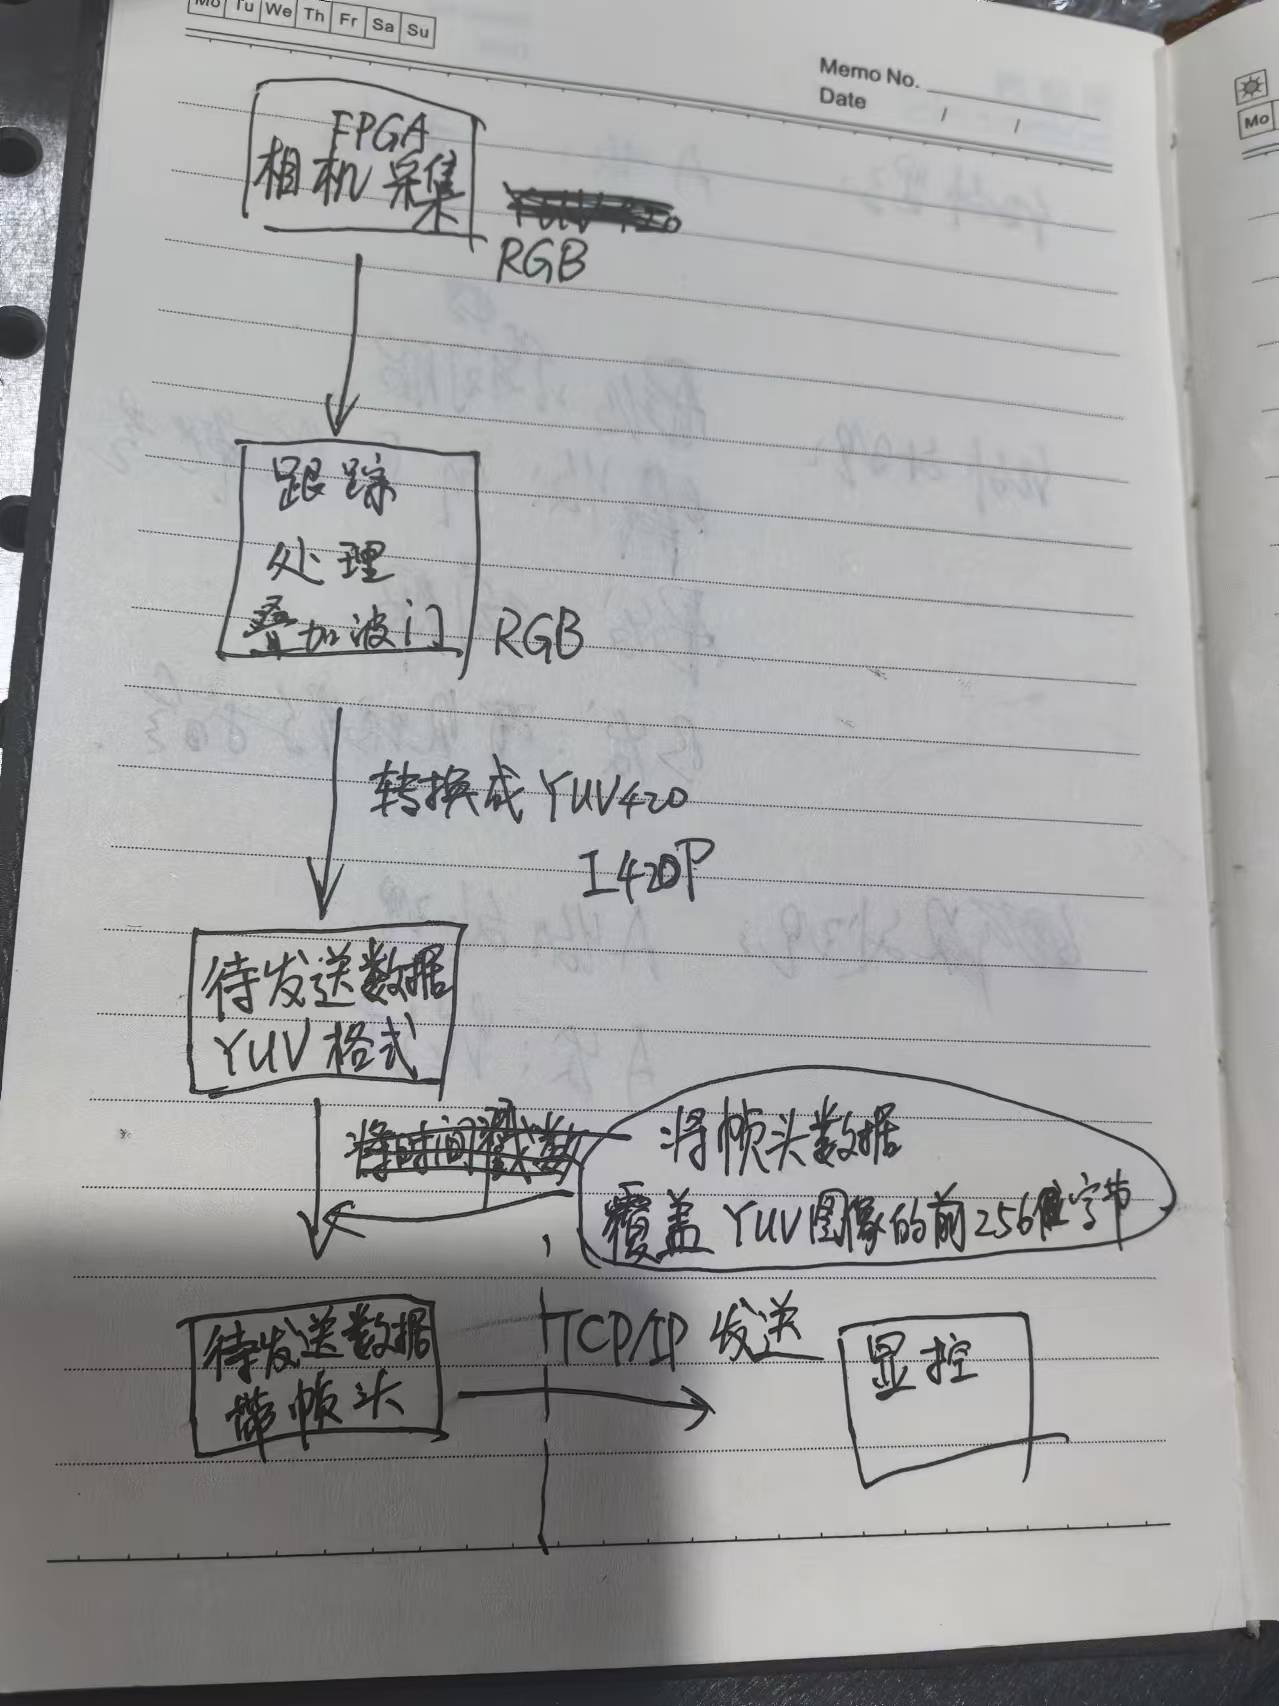 Mo Tu We Th Fr Sa Su
Memo No.
Date / /
Mo
FPGA
相机采集
RGB
跟踪
处理
叠加波门
RGB
转换成YUV420
I420P
待发送数据
YUV格式
将时间戳数
将帧头数据
覆盖YUV图像的前256字节
待发送数据
带帧头
TCP/IP 发送
显控